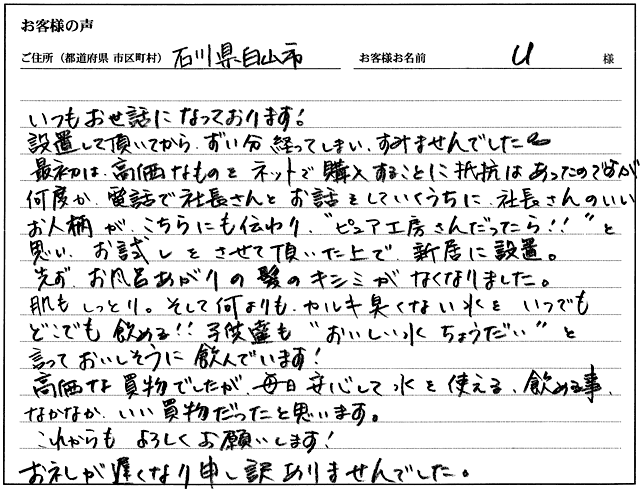 お客様の声
ご住所（都道府県 市区町村） 石川県白山市 お客様お名前 U 様
いつもお世話になっております!
設置して頂いてから、ずい分 経ってしまい、すみませんでした
最初は、高価なものを ネットで 購入することに 抵抗は あったのですが
何度か、電話で 社長さんと お話を していくうちに、社長さんのいい
お人柄が、こちらにも伝わり、"ピュア工房さんだったら!!"と
思い、お試しを させて頂いた上で、新居に設置。
先ず、お風呂あがりの 髪の キシミが なくなりました。
肌も しっとり。そして 何よりも、カルキ臭くない 水を いつでも
どこでも 飲める!! 子供達も "おいしい水 ちょうだい" と
言って おいしそうに 飲んでいます!
高価な 買物でしたが、毎日 安心して 水を 使える、飲める事、
なかなか、いい 買物だったと思います。
これからも よろしく お願いします!
お礼が 遅くなり 申し訳ありませんでした。